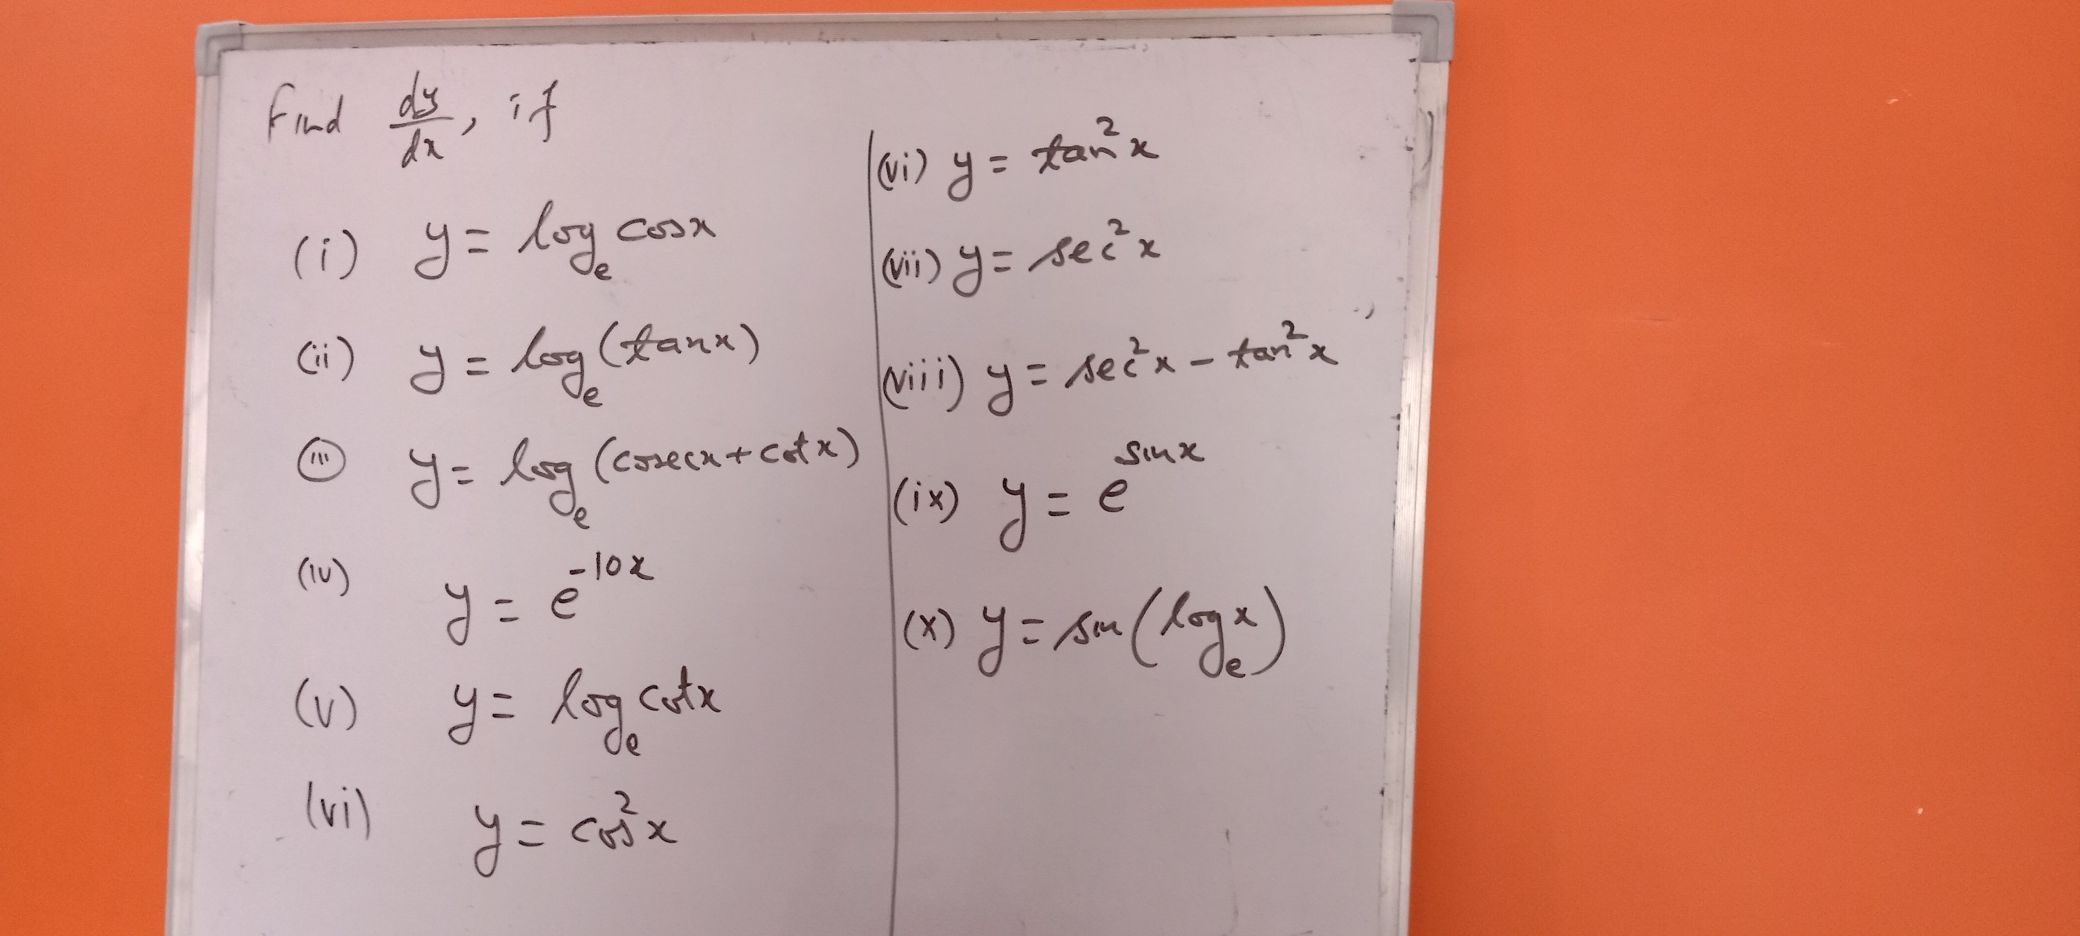 Find dy/dx, if
(i) y = logₑ cosx
(ii) y = logₑ (tanx)
(iii) y = logₑ (cosecx + cotx)
(iv) y = e^-10x
(v) y = logₑ cotx
(vi) y = cos²x
(vi) y = tan²x
(vii) y = sec²x
(viii) y = sec²x - tan²x
(ix) y = e^sinx
(x) y = sin(logₑx)